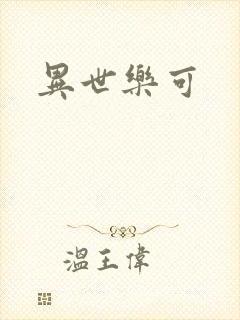 異世樂可
溫王偉